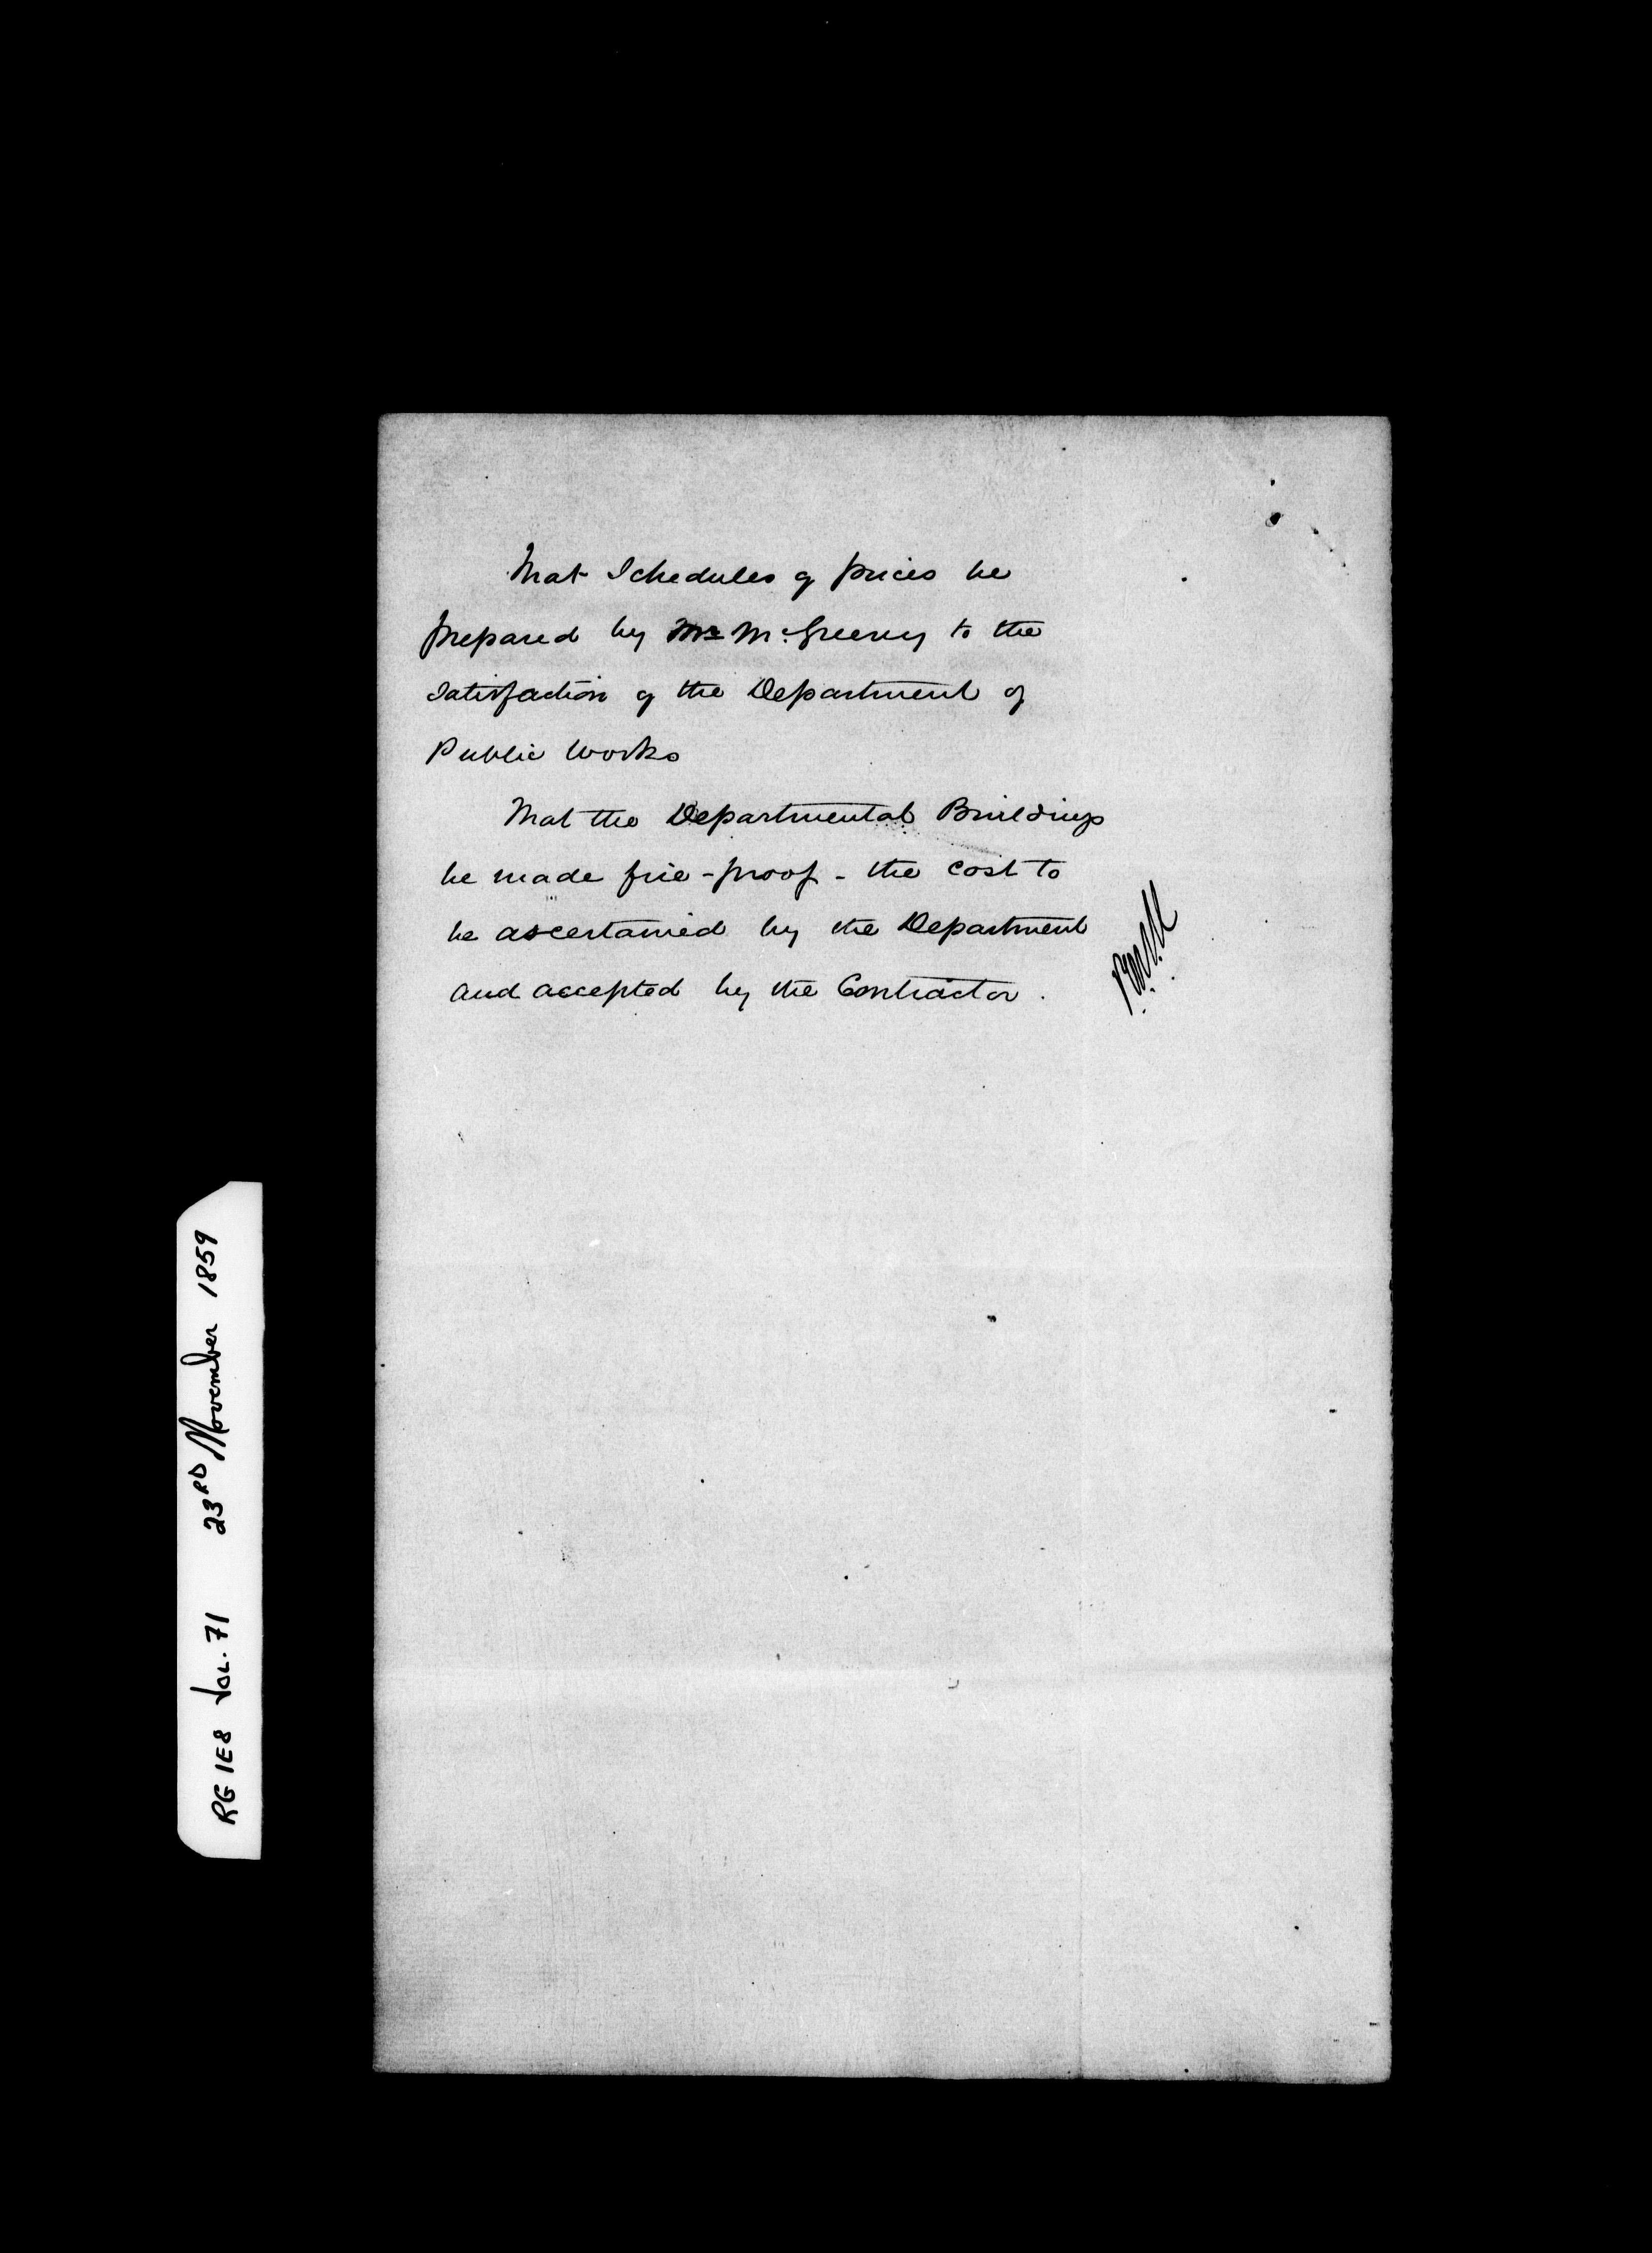 That Schedules of prices be
prepared by Mr McGreevy to the
satisfaction of the Department of
Public Works
That the Departmental Buildings
be made fire-proof - the cost to
be ascertained by the Department
and accepted by the Contractor.
RG 1E8 Vol. 71 23RD November 1859